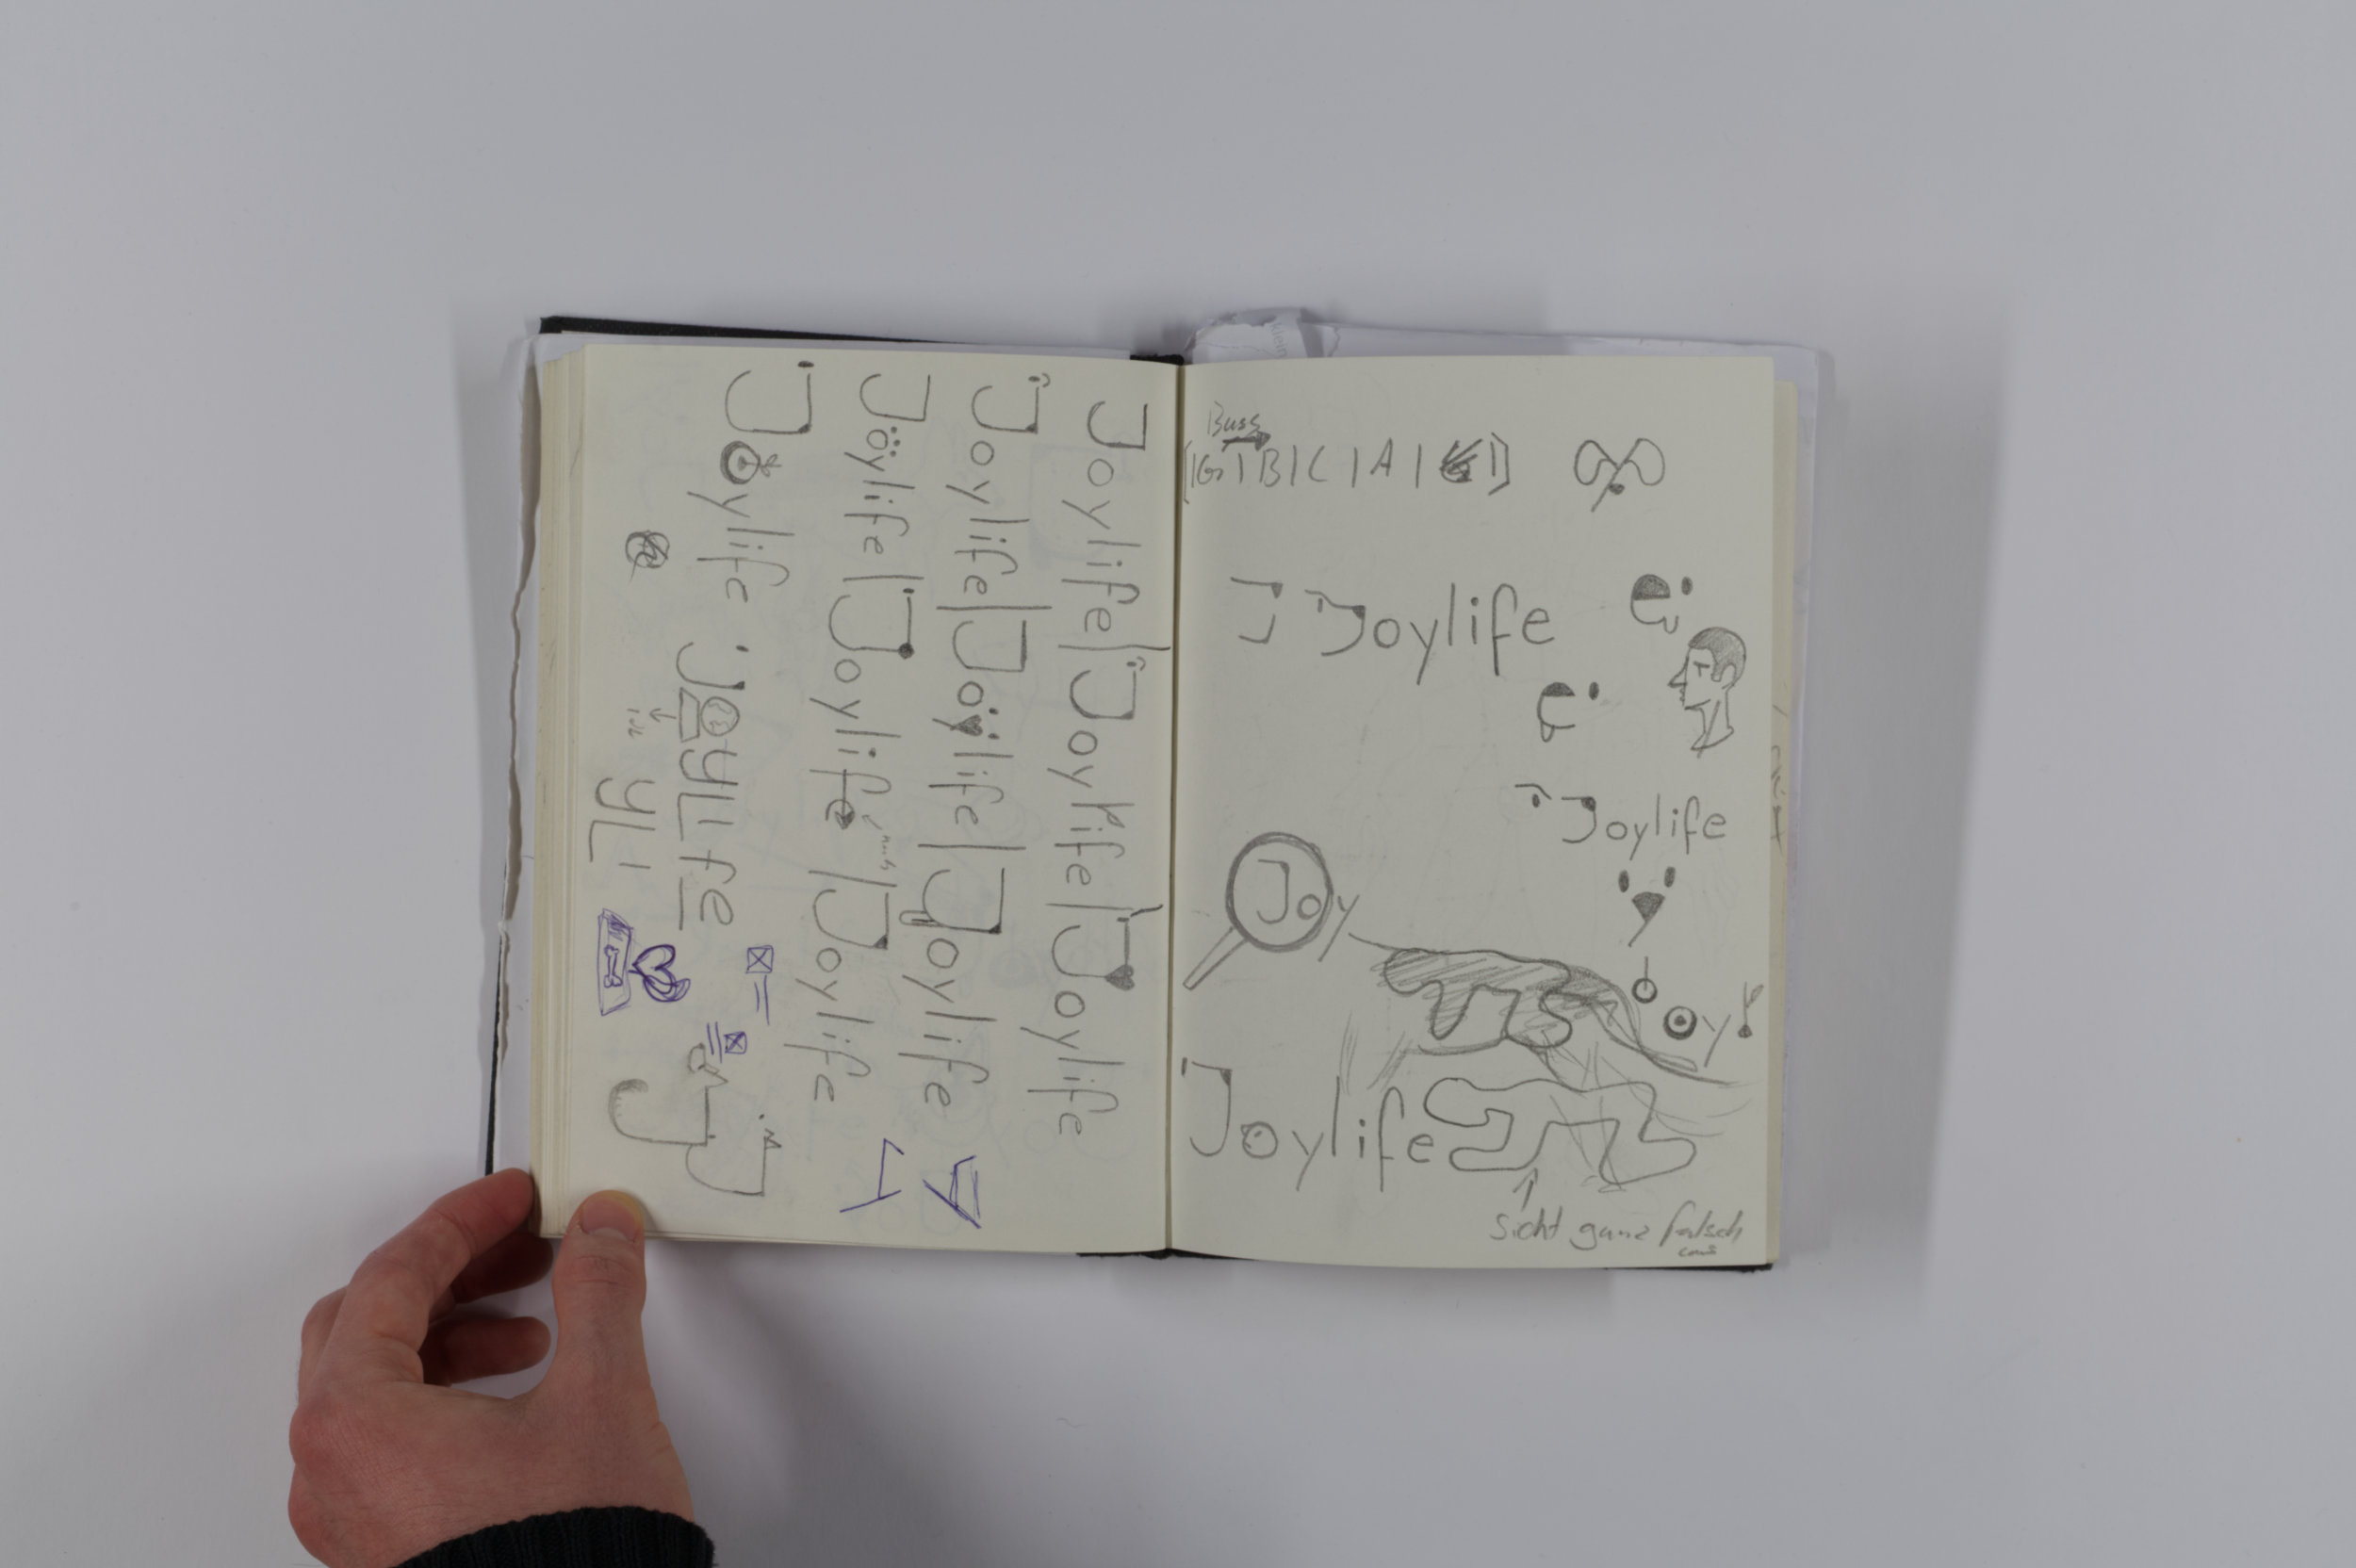 Joylife | Joylife | Joylife
Joylife | Joylife | Joylife
Joylife | Joylife | Joylife
Joylife JOYLIfe
YLI
J J
Bass
[|G|B|C|A|
J Joylife
e
e
Joylife
Joy
oy
Joylife
sicht ganz falsch